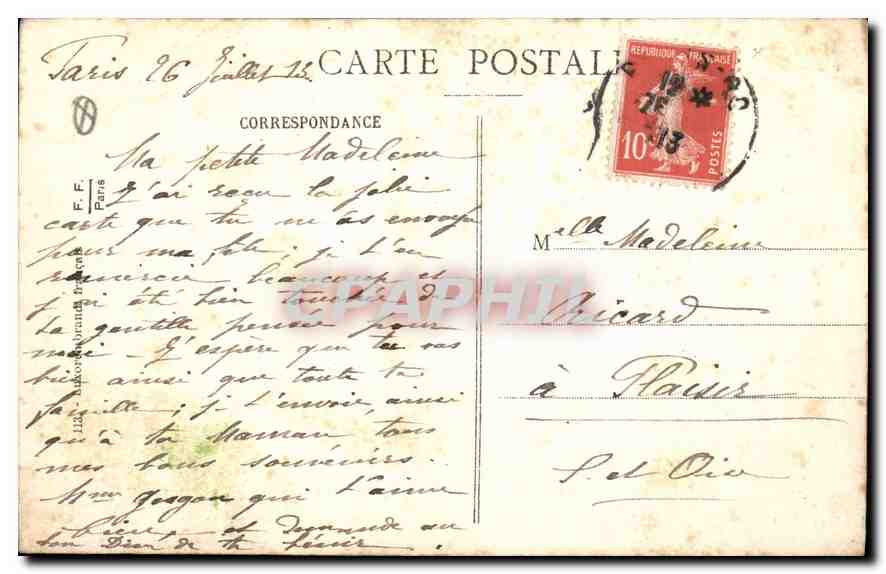 Paris 26 Juillet 13
CARTE POSTALE
CORRESPONDANCE
Ma petite Madeleine
J'ai reçu la jolie
carte que tu m'as envoyée
pour ma fête; je t'en
remercie beaucoup et
j'ai été bien touchée de
la gentille pensée pour
moi - J'espère que tu vas
bien ainsi que toute ta
famille; je t'envoie, ainsi
qu'à ta Maman tous
mes bons souvenirs.
Mme qui t'aime
bien, et demande au
bon Dieu de te bénir.
F. F.
Paris
113 français
REPUBLIQUE FRANÇAISE
10
POSTES
13
Melle Madeleine
Ricard
à Plaisir
S. et Oise
CPAPHIL